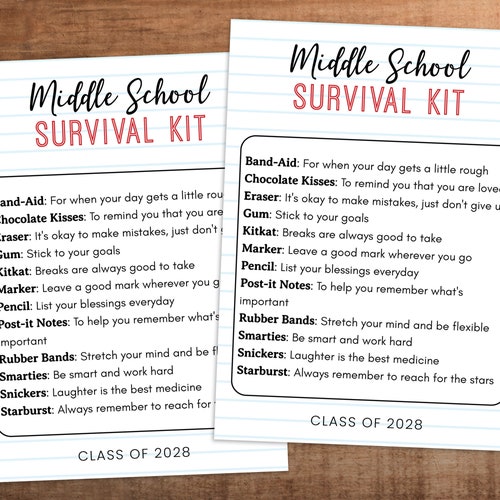 Middle School
SURVIVAL KIT
and-Aid: For when your day gets a little rou
Chocolate Kisses: To remind you that you are
Eraser: It's okay to make mistakes, just don't g
Gum: Stick to your goals
Kitkat: Breaks are always good to take
Marker: Leave a good mark wherever you g
Pencil: List your blessings everyday
Post-it Notes: To help you remember what's
mportant
Rubber Bands: Stretch your mind and be fl
Smarties: Be smart and work hard
Snickers: Laughter is the best medicine
Starburst: Always remember to reach for the
CLASS OF 2028
Middle School
SURVIVAL KIT
Band-Aid: For when your day gets a little rough
Chocolate Kisses: To remind you that you are love
Eraser: It's okay to make mistakes, just don't give u
Gum: Stick to your goals
Kitkat: Breaks are always good to take
Marker: Leave a good mark wherever you go
Pencil: List your blessings everyday
Post-it Notes: To help you remember what's
important
Rubber Bands: Stretch your mind and be flexible
Smarties: Be smart and work hard
Snickers: Laughter is the best medicine
Starburst: Always remember to reach for the stars
CLASS OF 2028